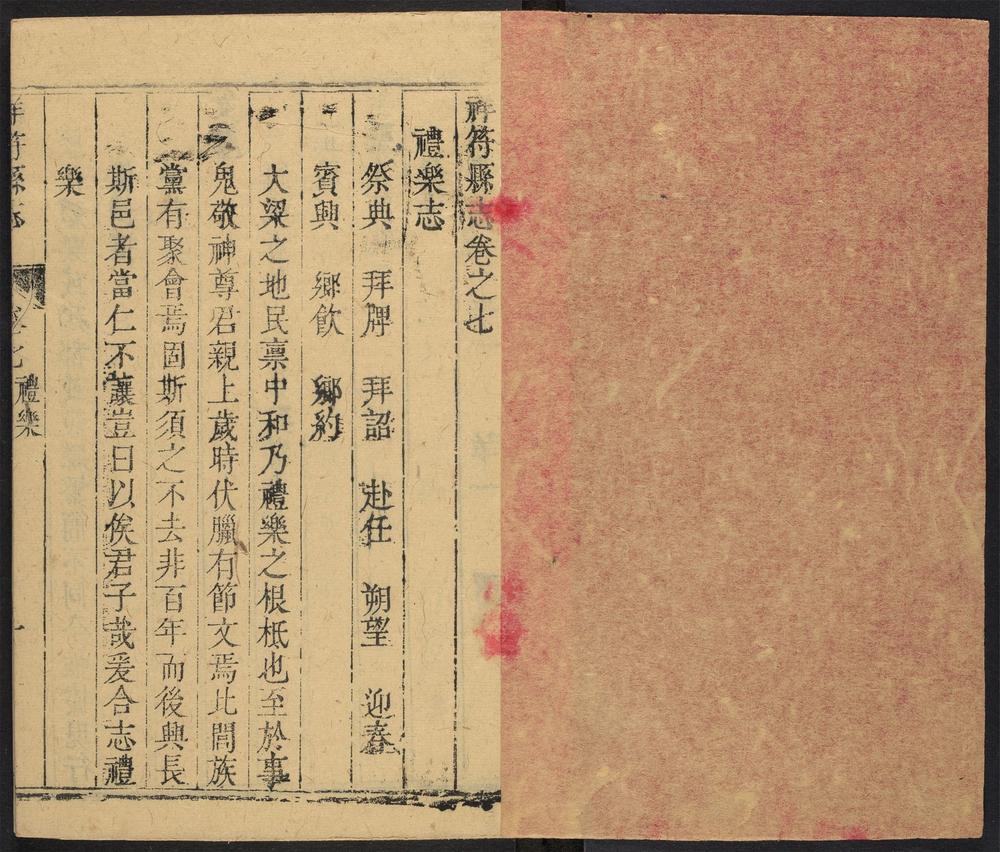 祥符縣志卷之七
禮樂志
祭典 拜牌 拜詔 赴任 朔望 迎春
賓興 鄉飲 鄉約
大梁之地民禀中和乃禮樂之根柢也至於事
鬼敬神尊君親上歲時伏臘有節文焉比閭族
黨有聚會焉固斯須之不去非百年而後興長
斯邑者當仁不讓豈曰以俟君子哉爰合志禮
樂
祥符縣志 卷七 禮樂 一